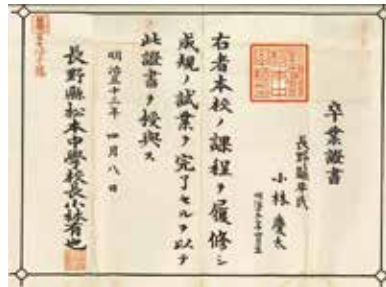 卒業證書
長野縣平民
小林慶太
右者本校ノ課程ヲ履修シ
成規ノ試業ヲ完了セルヲ以テ
此證書ヲ授與ス
明治三十三年四月八日
長野縣松本中學校長小林有也